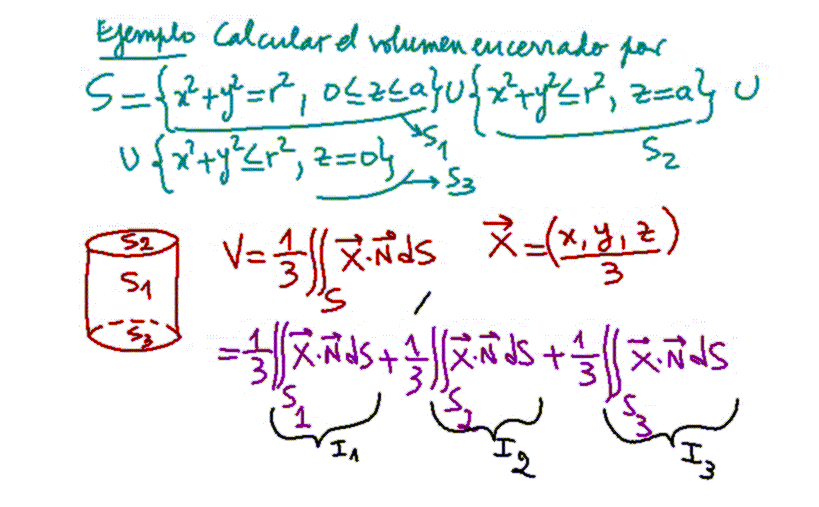 Ejemplo Calcular el volumen encerrado por
S = {x²+y²=r², 0≤z≤a} ∪ {x²+y²≤r², z=a} ∪
S₁
S₂
∪ {x²+y²≤r², z=0}
S₃
S₂
S₁
S₃
V = 1/3 ∬_S X⃗·N⃗ dS X⃗ = (x, y, z)/3
= 1/3 ∬_S₁ X⃗·N⃗ dS + 1/3 ∬_S₂ X⃗·N⃗ dS + 1/3 ∬_S₃ X⃗·N⃗ dS
I₁ I₂ I₃